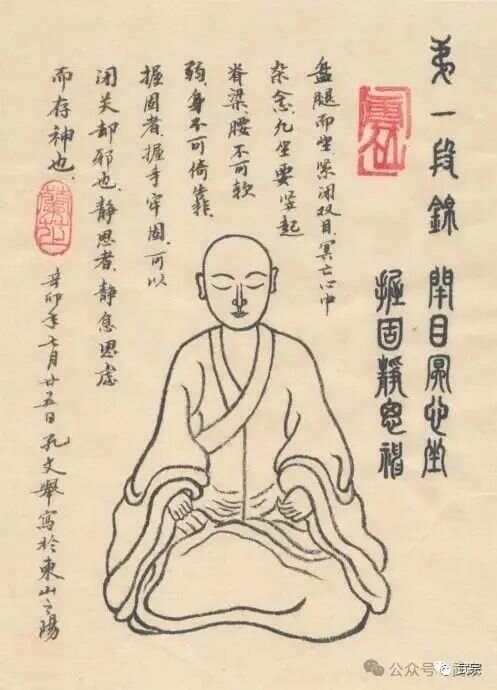 弟一段錦 閉目冥心坐
握固靜思神
盘腿而坐紧闭双目,冥亡心中
杂念,凡坐要竖起
脊梁腰不可软
弱,身不可倚靠,
握固者,握手牢固,可以
闭关却邪也,静思者,静息思虑
而存神也,
辛卯年七月廿五日孔文舉寫於東山之陽
公众号 武宗